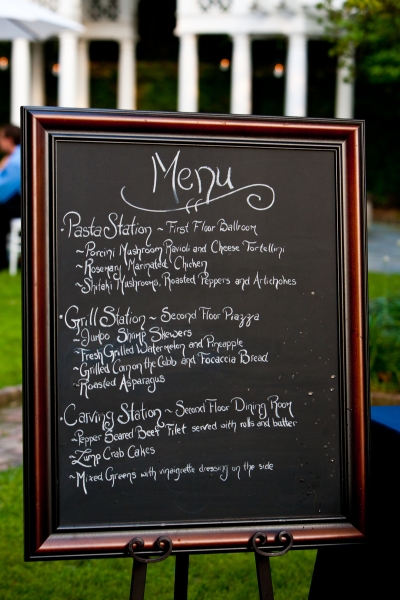 Menu
· Pasta Station ~ First Floor Ballroom
~ Porcini Mushroom Ravioli and Cheese Tortellini
~ Rosemary Marinated Chicken
~ Shitaki Mushrooms, Roasted Peppers and Artichokes
· Grill Station ~ Second Floor Piazza
~ Jumbo Shrimp Skewers
~ Fresh Grilled Watermelon and Pineapple
~ Grilled Corn on the Cobb and Focaccia Bread
~ Roasted Asparagus
· Carving Station ~ Second Floor Dining Room
~ Pepper Seared Beef Filet served with rolls and butter
~ Lump Crab Cakes
~ Mixed Greens with vinaigrette dressing on the side